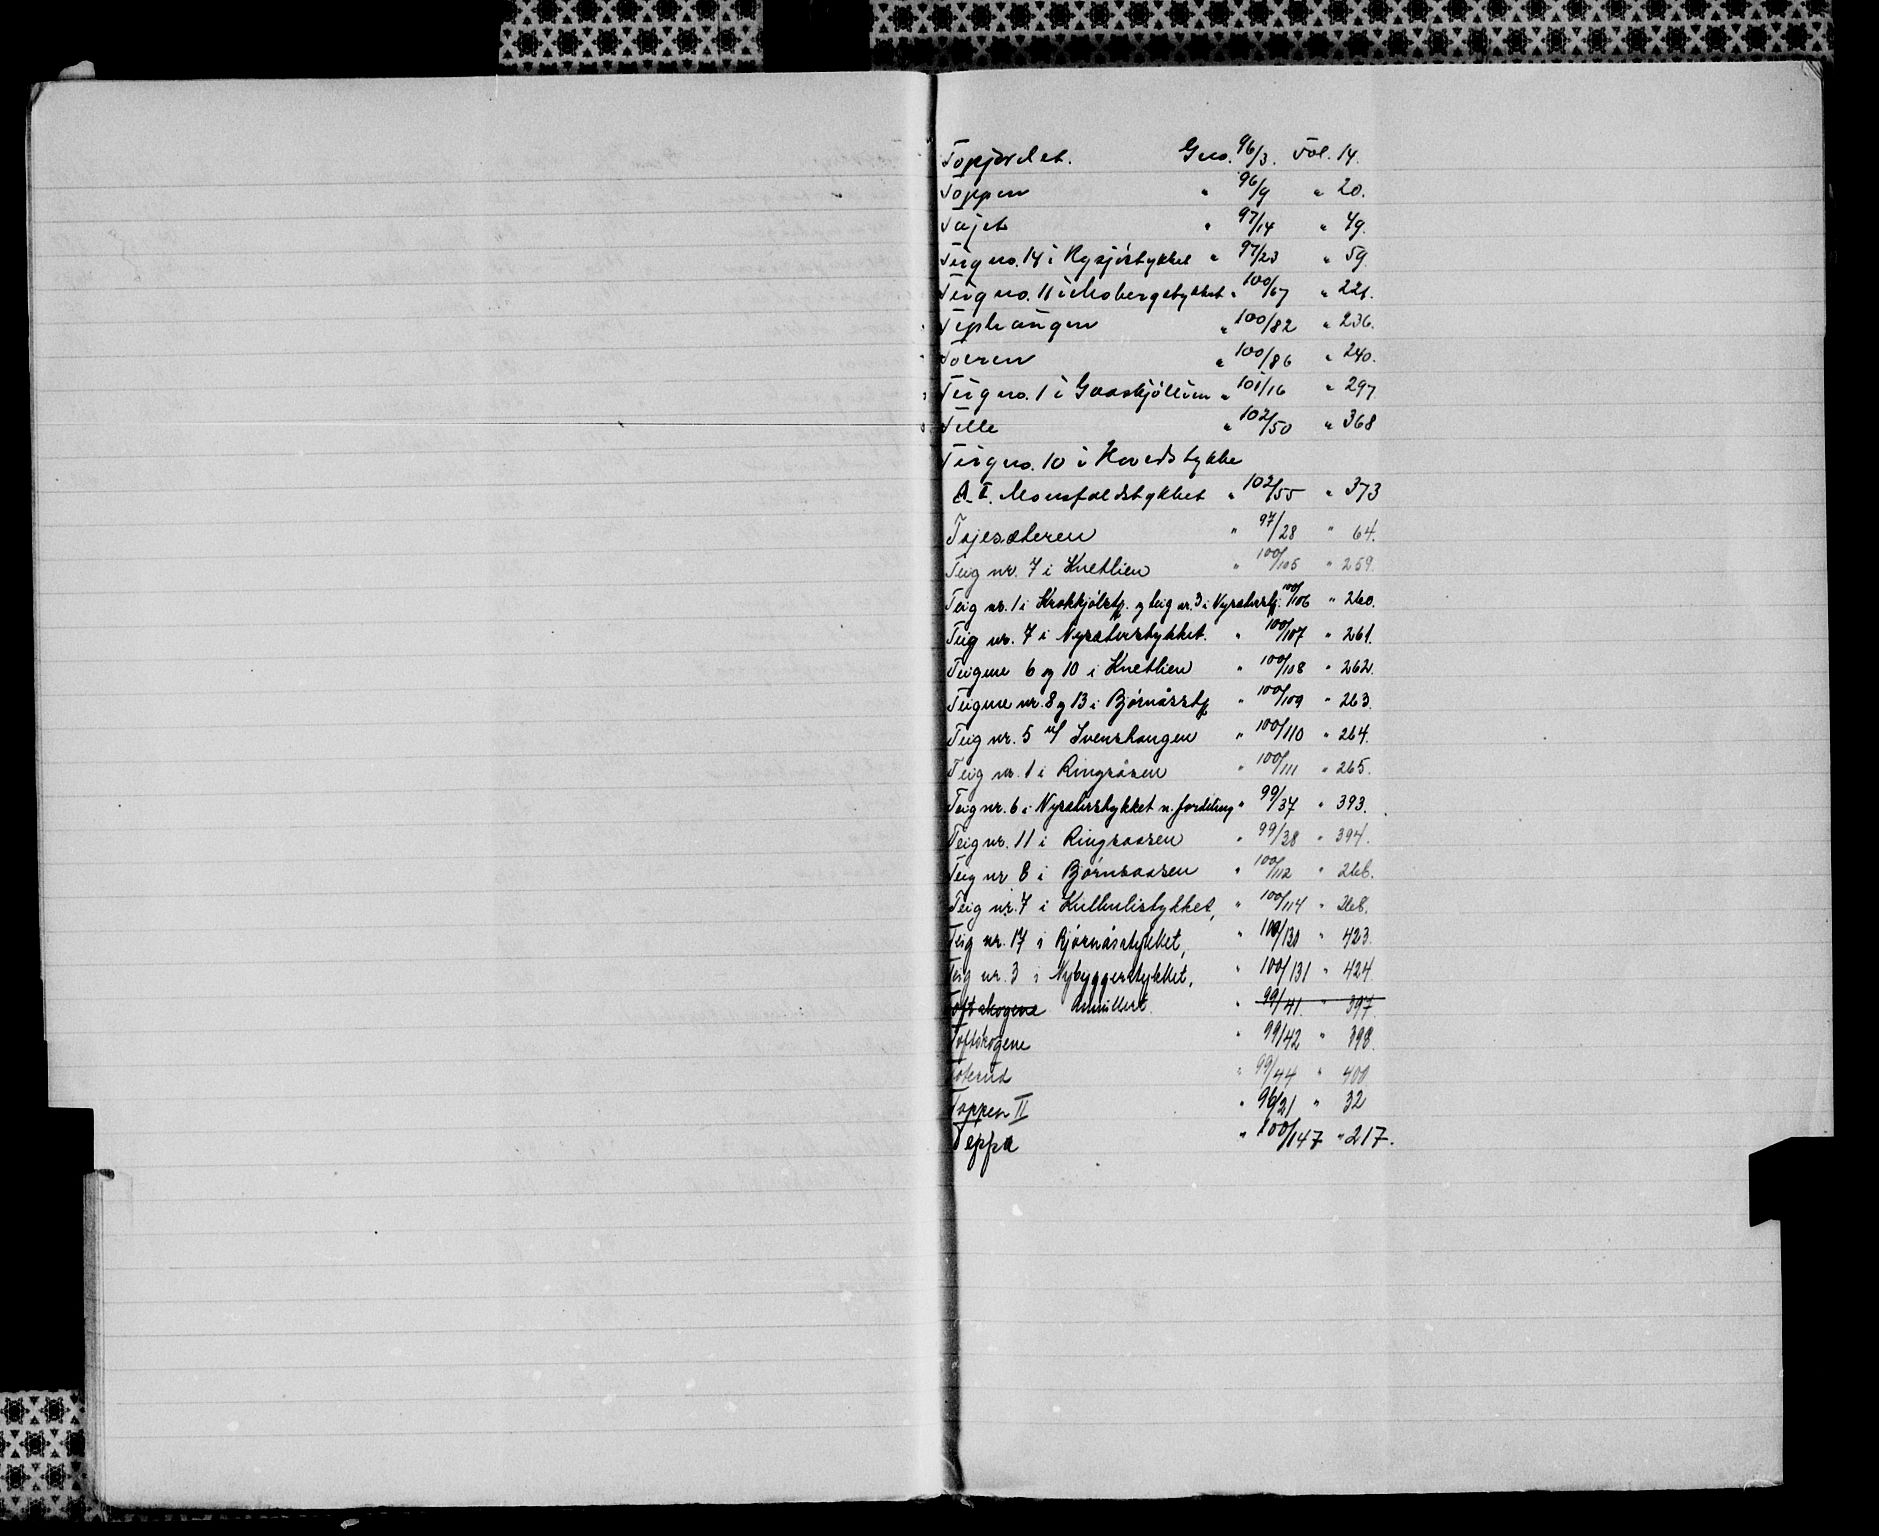 Topjordet. Gno. 96/3. Fol. 14.
Toppen " 96/9 " 20.
Tajet " 97/14 " 49.
Teig no. 14 i Rysjöstykket " 97/23 " 59.
Teig no. 11 i Mobergstykket " 100/67 " 221.
Tephaugen " 100/82 " 236.
Toeren " 100/86 " 240.
Teig no. 1 i Gaaskjöllien " 101/16 " 297
Tille " 102/50 " 368
Teig no. 10 i Hovedstykke
A. I. Monsfoldstykket " 102/55 " 373
Tajesæteren " 97/28 " 64.
Teig nr. 7 i Knetlien " 100/105 " 259.
Teig nr. 1 i Krokkjølstj. og teig nr. 3 i Nysæterstj. 100/106 " 260.
Teig nr. 7 i Nysæterstykket. " 100/107 " 261.
Teigene 6 og 10 i Knetlien " 100/108 " 262.
Teigene nr. 8 og 13 i Bjørnåsstj " 100/109 " 263.
Teig nr. 5 Svenshaugen " 100/110 " 264.
Teig nr. 1 i Ringsåsen " 100/111 " 265.
Teig nr. 6 i Nysæterstykket n. fordeling " 99/37 " 393.
Teig nr. 11 i Ringsaasen " 99/38 " 394.
Teig nr 8 i Bjørnaasen " 100/112 " 266.
Teig nr. 7 i Kulbulistykket, " 100/114 " 268.
Teig nr. 17 i Bjørnåsstykket, " 100/130 " 423.
Teig nr. 3 i Nybyggerstykket, " 100/131 " 424.
Toftskogene Annullert. " 99/41. " 397.
Toftskogene " 99/42 " 398.
Toterud " 99/44 " 400
Toppen II " 96/21 " 32
Teppa " 100/147 " 217.